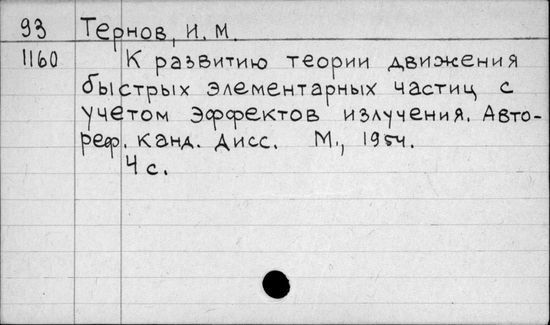 93 Тернов, И. М.
1160 К развитию теории движения
быстрых элементарных частиц с
учетом эффектов излучения. Авто-
реф. канд. дисс. М., 1954.
4 с.